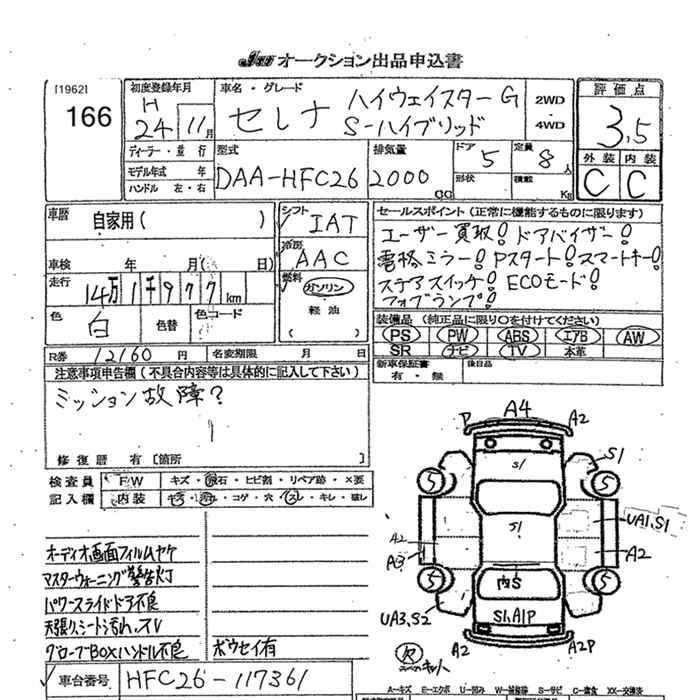 オークション出品申込書
[1962]
166
初度登録年月
H
24 11月
車名・グレード
セレナ ハイウェイスターG
S-ハイブリッド
2WD
4WD
評価点
3.5
外装 内装
C C
ディーラー・並行
モデル年式 年
ハンドル 左・右
型式
DAA-HFC26
排気量
2000
CC
ドア
5
形状
定員
8人
積載
Kg
車歴
自家用( )
車検 年 月( 日)
走行
14万1千977km
色
白
色替
色コード
シフト
IAT
冷房
AAC
燃料
ガソリン
軽油
( )
セールスポイント(正常に機能するものに限ります)
ユーザー買取!ドアバイザー!
電格ミラー!Pスタート!スマートキー!
ステアスイッチ!ECOモード!
フォグランプ!
装備品(純正品に限り○を付けてください)
PS PW ABS エアB AW
SR ナビ TV 本革
新車保証書
有・無
後日品
R券 12160円
名変期限 月 日
注意事項申告欄(不具合内容等は具体的に記入して下さい)
ミッション故障?
修復歴 有[箇所
検査員
記入欄
FW
キズ・飛石・ヒビ割・リペア跡・×要
内装
キズ・汚れ・コゲ・穴・スレ・キレ・破レ
オーディオ画面フィルムヤケ
マスターウォーニング警告灯
パワースライドドア不良
天張り、シート汚れ、スレ
グローブBOXハンドル不良
ボウセイ有
車台番号 HFC26-117361
P A4 A2
S1
S1
5 5
S1
A2
A3
UA1.S1
A2
5 5
内S
UA3.S2
S1.A1P
A2 A2P
欠
A-キズ E-エクボ U-凹み W-補修跡 S-サビ C-腐食 XX-交換済